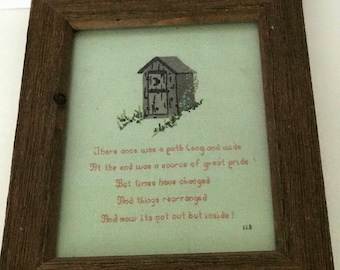 There once was a path long and wide
At the end was a source of great pride
But times have changed
And things rearranged
And now its not out but inside!
LLB